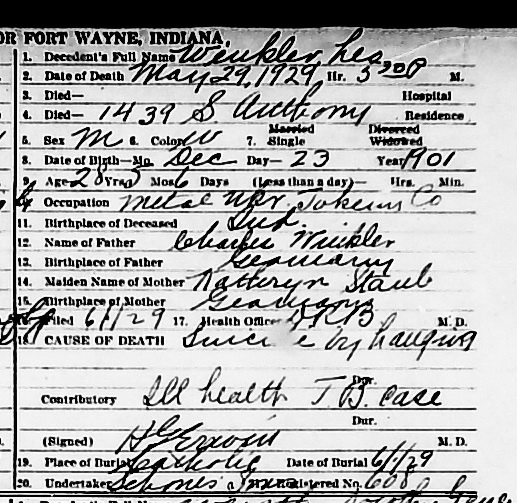 OR FORT WAYNE, INDIANA.
1. Decedent's Full Name Winkler, Leo
2. Date of Death May 29, 1929, Hr. 5 30 P M.
3. Died— Hospital
4. Died— 1439 S Anthony Residence
5. Sex M 6. Color W 7. Married Single Divorced Widowed
8. Date of Birth—Mo. Dec Day— 23 Year 1901
9. Age 28 Yrs. 5 Mos. 6 Days (Less than a day)— Hrs. Min.
Occupation Metal Wkr Co
11. Birthplace of Deceased Ind
12. Name of Father Charles Winkler
13. Birthplace of Father Germany
14. Maiden Name of Mother Katheryn Staub
15. Birthplace of Mother Germany
16. Filed 6/1/29 17. Health Officer M. D.
18. CAUSE OF DEATH Suic e by hanging
Dur.
Contributory Ill health T. B. case
Dur.
(Signed) M. D.
19. Place of Burial Catholic Date of Burial 6/1/29
20. Undertaker Registered No. 608